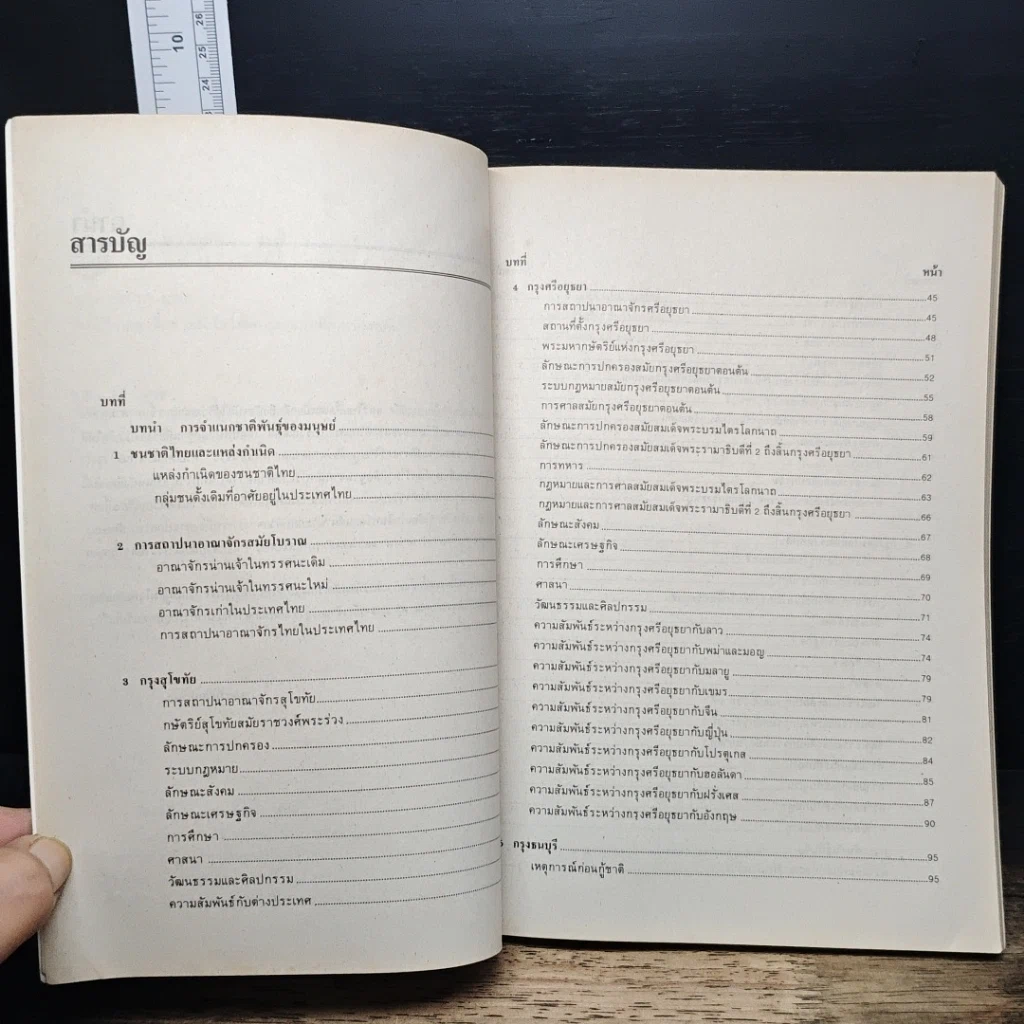 10
26
25
24
สารบัญ
บทที่
บทนำ การจำแนกชาติพันธุ์ของมนุษย์
1 ชนชาติไทยและแหล่งกำเนิด
แหล่งกำเนิดของชนชาติไทย
กลุ่มชนดั้งเดิมที่อาศัยอยู่ในประเทศไทย
2 การสถาปนาอาณาจักรสมัยโบราณ
อาณาจักรน่านเจ้าในทรรศนะเดิม
อาณาจักรน่านเจ้าในทรรศนะใหม่
อาณาจักรเก่าในประเทศไทย
การสถาปนาอาณาจักรไทยในประเทศไทย
3 กรุงสุโขทัย
การสถาปนาอาณาจักรสุโขทัย
กษัตริย์สุโขทัยสมัยราชวงศ์พระร่วง
ลักษณะการปกครอง
ระบบกฎหมาย
ลักษณะสังคม
ลักษณะเศรษฐกิจ
การศึกษา
ศาสนา
วัฒนธรรมและศิลปกรรม
ความสัมพันธ์กับต่างประเทศ
บทที่ หน้า
4 กรุงศรีอยุธยา 45
การสถาปนาอาณาจักรศรีอยุธยา 45
สถานที่ตั้งกรุงศรีอยุธยา 48
พระมหากษัตริย์แห่งกรุงศรีอยุธยา 51
ลักษณะการปกครองสมัยกรุงศรีอยุธยาตอนต้น 52
ระบบกฎหมายสมัยกรุงศรีอยุธยาตอนต้น 55
การศาลสมัยกรุงศรีอยุธยาตอนต้น 58
ลักษณะการปกครองสมัยสมเด็จพระบรมไตรโลกนาถ 59
ลักษณะการปกครองสมัยสมเด็จพระรามาธิบดีที่ 2 ถึงสิ้นกรุงศรีอยุธยา 61
การทหาร 62
กฎหมายและการศาลสมัยสมเด็จพระบรมไตรโลกนาถ 63
กฎหมายและการศาลสมัยสมเด็จพระรามาธิบดีที่ 2 ถึงสิ้นกรุงศรีอยุธยา 66
ลักษณะสังคม 67
ลักษณะเศรษฐกิจ 68
การศึกษา 69
ศาสนา 70
วัฒนธรรมและศิลปกรรม 71
ความสัมพันธ์ระหว่างกรุงศรีอยุธยากับลาว 74
ความสัมพันธ์ระหว่างกรุงศรีอยุธยากับพม่าและมอญ 74
ความสัมพันธ์ระหว่างกรุงศรีอยุธยากับมลายู 79
ความสัมพันธ์ระหว่างกรุงศรีอยุธยากับเขมร 79
ความสัมพันธ์ระหว่างกรุงศรีอยุธยากับจีน 81
ความสัมพันธ์ระหว่างกรุงศรีอยุธยากับญี่ปุ่น 82
ความสัมพันธ์ระหว่างกรุงศรีอยุธยากับโปรตุเกส 84
ความสัมพันธ์ระหว่างกรุงศรีอยุธยากับฮอลันดา 85
ความสัมพันธ์ระหว่างกรุงศรีอยุธยากับฝรั่งเศส 87
ความสัมพันธ์ระหว่างกรุงศรีอยุธยากับอังกฤษ 90
กรุงธนบุรี 95
เหตุการณ์ก่อนกู้ชาติ 95